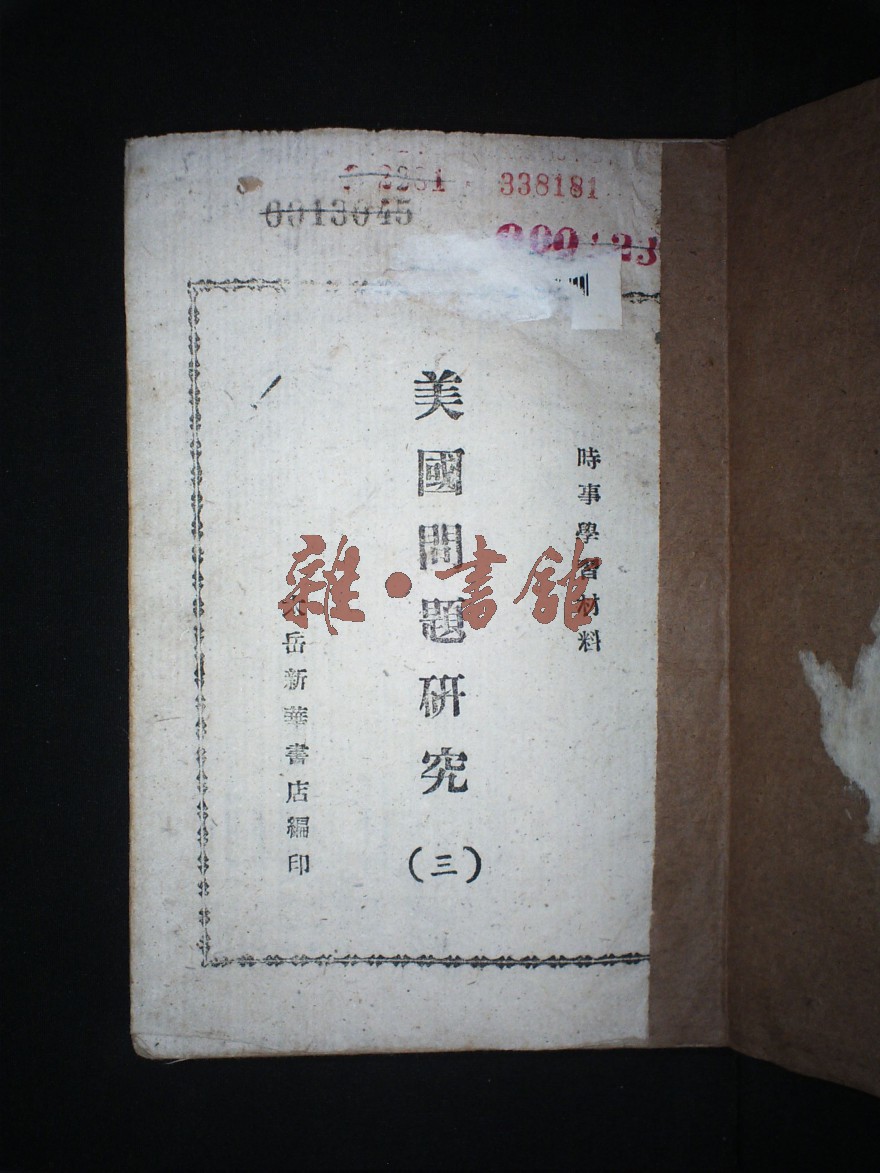 338181
0013045
時事學習材料
美國問題研究
(三)
岳新華書店編印
雜·書館